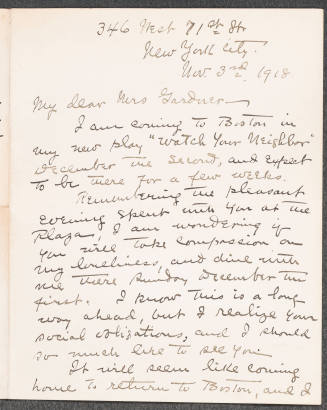 346 West 71st St
New York City.
Nov 3rd, 1918
My dear Mrs Gardner—
I am coming to Boston in
my new play "Watch Your Neighbor"
December the second, and expect
to be there for a few weeks.
Remembering the pleasant
evening spent with you at the
Plaza, I am wondering if
you will take compassion on
my loneliness, and dine with
me there Sunday December the
first. I know this is a long
way ahead, but I realize your
social obligations, and I should
so much like to see you.
It will seem like coming
home to return to Boston, and I